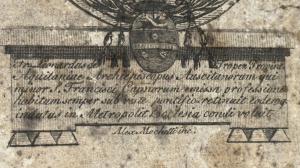 Fr. Leonardus de Trapes
Aquitaniae Archiepiscopus Auscitanorum qui
S. Francisci Capucinorum emissa professione
habitum semper sub veste pontific. retinuit eodemq
indutus in Metropolit. Ecclesia condi voluit
Alex. Mochetti inc.